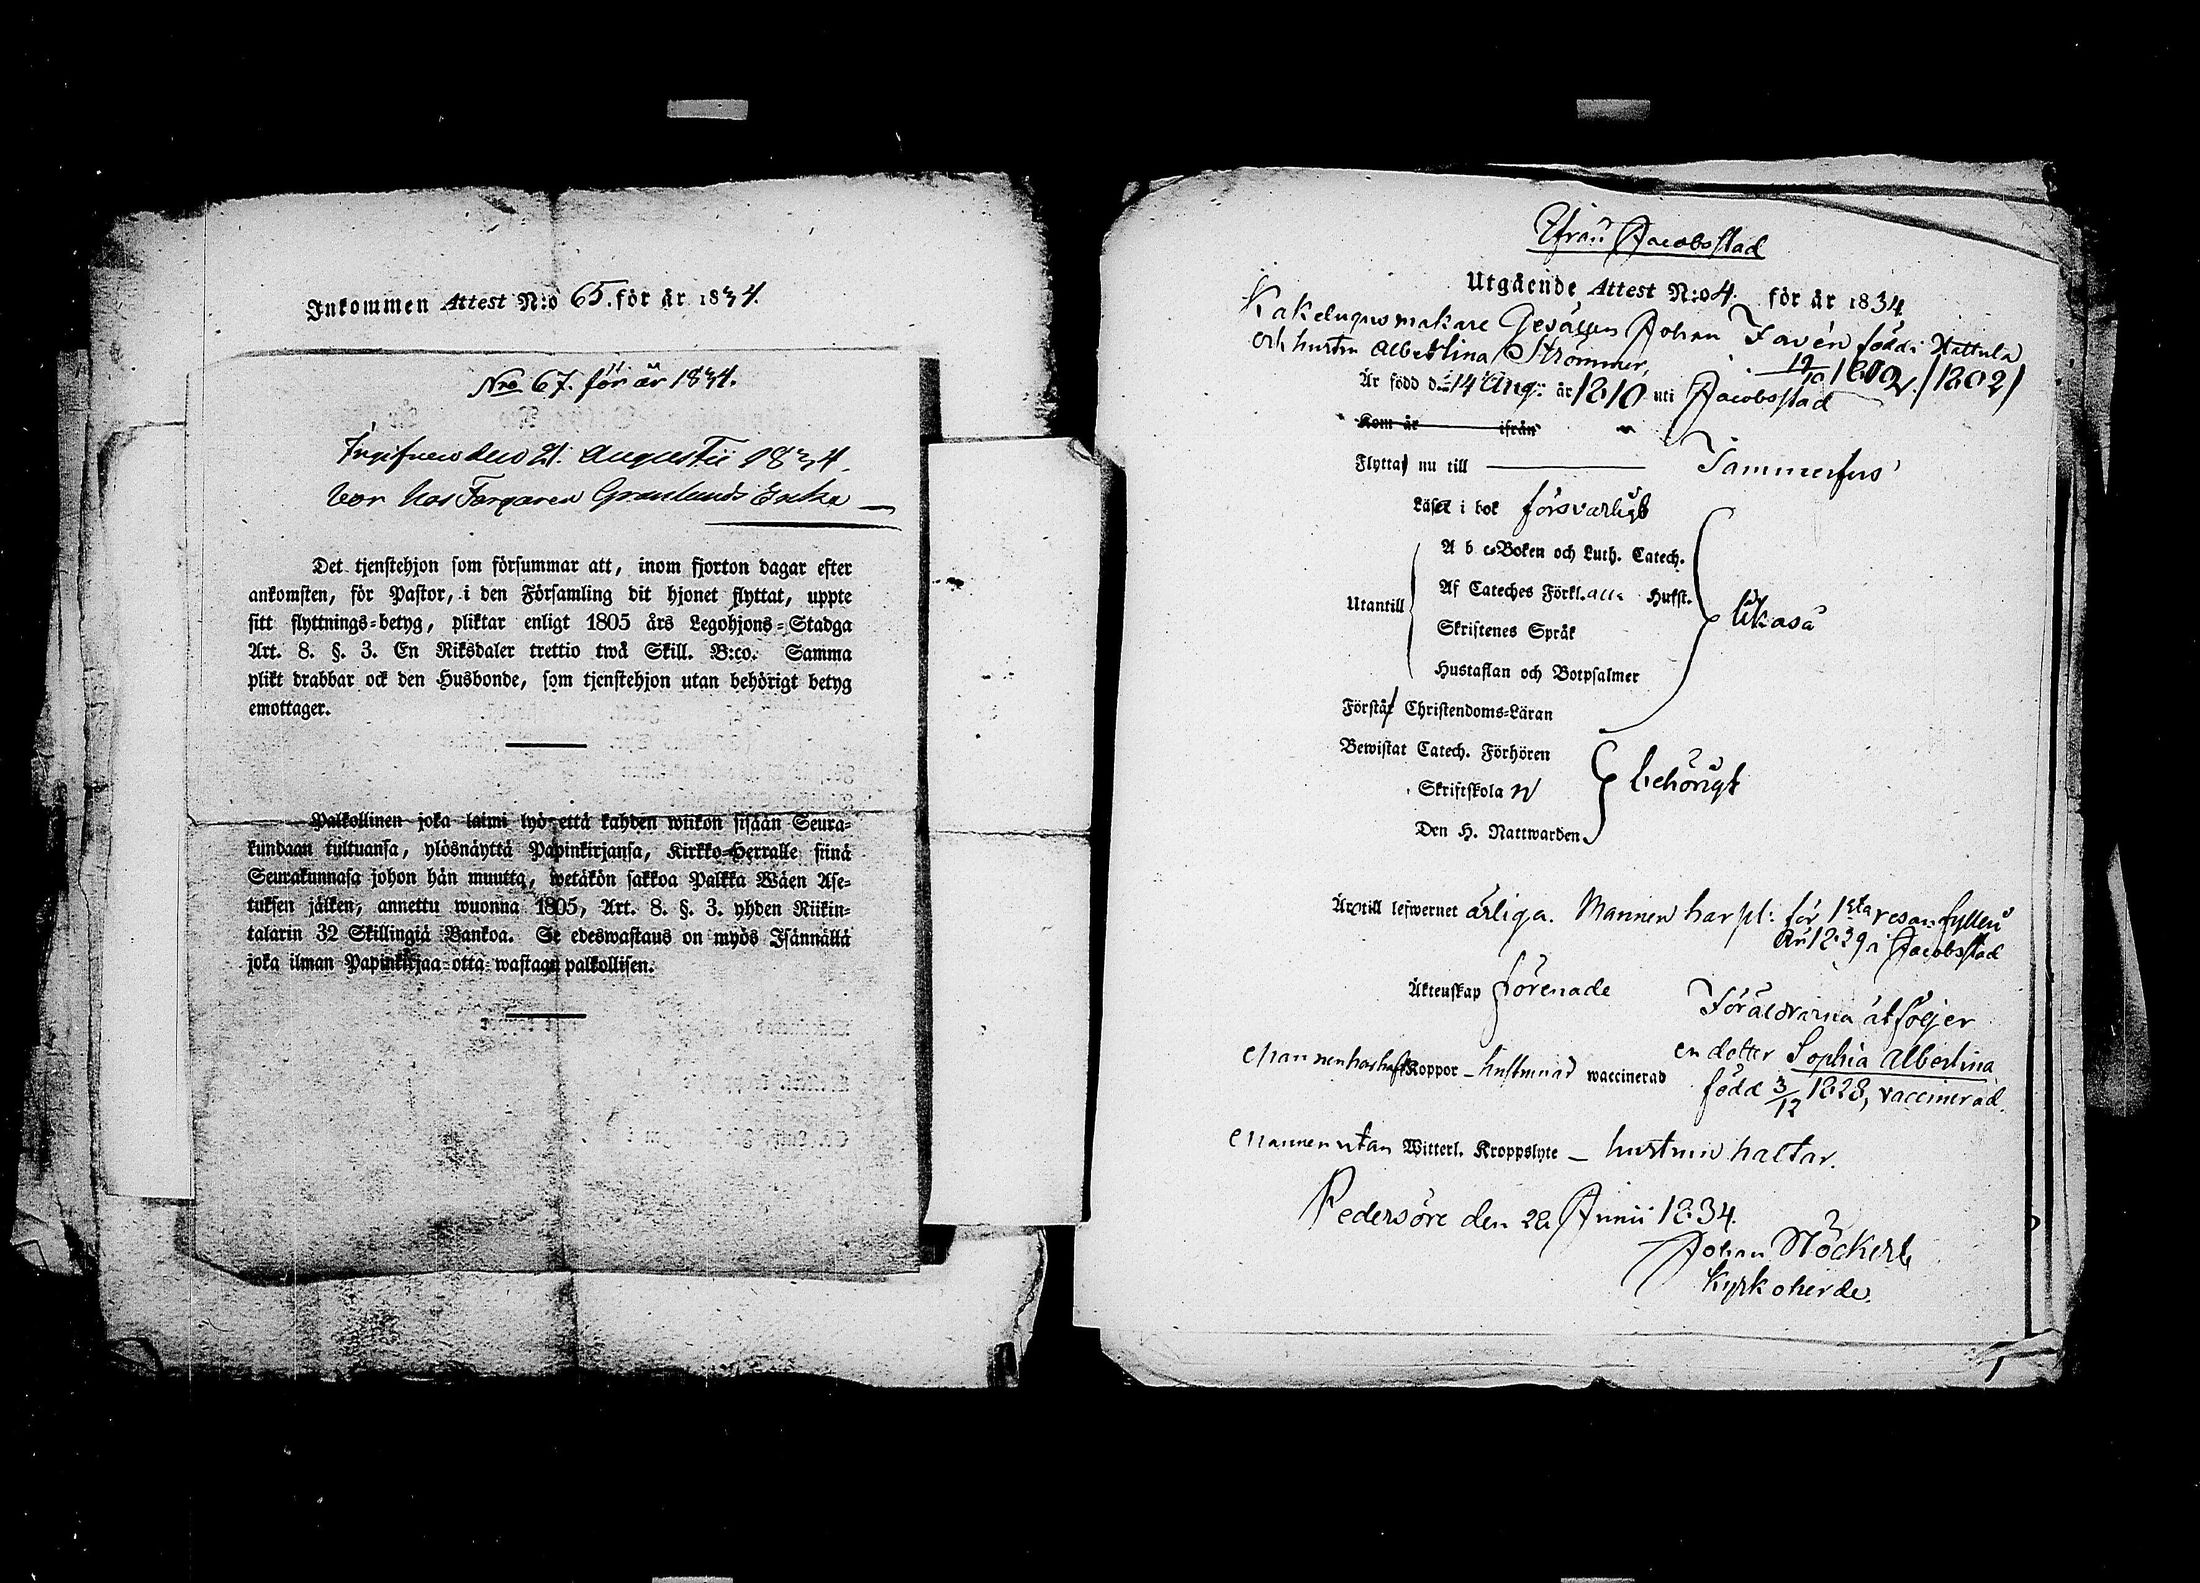 Inkommen Attest N:o 65. för år 1834.
Nro 67. för år 1834.
den 21. Augusti 1834.
bor hos Färgaren Granlunds Enka —
Det tjenstehjon som försummar att, inom fjorton dagar efter
ankomsten, för Pastor, i den Församling dit hjonet flyttat, uppte
sitt flyttnings-betyg, pliktar enligt 1805 års Legohjons-Stadga
Art. 8. §. 3. En Riksdaler trettio twå Skill. B:co. Samma
plikt drabbar ock den Husbonde, som tjenstehjon utan behörigt betyg
emottager.
Palkollinen joka laimi lyö että kahden wiikon sisään Seura-
kundaan tultuansa, ylösnäyttä Papinkirjansa, Kirkko-Herralle siinä
Seurakunnasa johon hän muutta, wetäkön sakkoa Palkka Wäen Ase-
tuksen jälken, annettu wuonna 1805, Art. 8. §. 3. yhden Riikin-
talarin 32 Skillingiä Bankoa. Se edeswastaus on myös Isännällä
joka ilman Papinkirjaa otta wastaan palkollisen.
Ifrån Jacobsstad
Utgående Attest N:o 4. för år 1834
Kakelugnsmakare Gesällen Johan Favén född i Hattula
och hustru Albertina Strömmer, 19/10 1802. /1802/
Är född d. 14 Aug: år 1810 uti Jacobsstad
Kom år ifrån
Flytta nu till Tammerfors
Läser i bok försvarligt
A b c-Boken och Luth. Catech.
Af Cateches Förkl. alla Hufst.
Utantill
likaså
Skriftenes Språk
Hustaflan och Botpsalmer
Förstår Christendoms-Läran
Bewistat Catech. Förhören
Skriftskola n
behörigt
Den H. Nattwarden
Äro till lefwernet ärliga. Mannen har pl: för 1sta resan fylleri
År 1829 i Jacobsstad
Äktenskap förenade
Föräldrarna åtföljer
en dotter Sophia Albertina
Mannen har haft Koppor – hustrun är waccinerad
född 3/12 1828, vaccinerad.
Mannen utan Witterl. Kroppslyte – hustrun haltar.
Pedersöre den 28 Junii 1834.
Johan
Kyrkoherde.